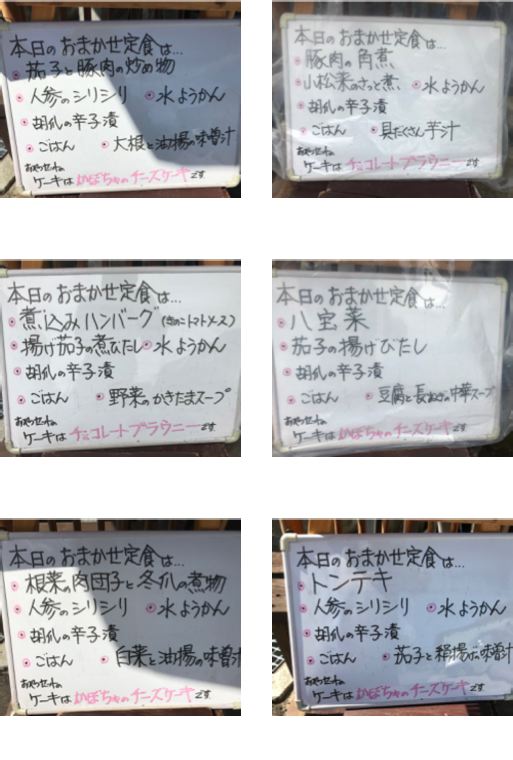 本日のおまかせ定食は…
茄子と豚肉の炒め物
人参のシリシリ 水ようかん
胡瓜の辛子漬
ごはん 大根と油揚の味噌汁
おやつセットの
ケーキは かぼちゃのチーズケーキ です
本日のおまかせ定食は…
豚肉の角煮
小松菜のさっと煮 水ようかん
胡瓜の辛子漬
ごはん 具だくさん芋汁
おやつセットの
ケーキは チョコレートブラウニー です
本日のおまかせ定食は…
煮込みハンバーグ(きのこトマトソース)
揚げ茄子の煮びたし 水ようかん
胡瓜の辛子漬
ごはん 野菜のかきたまスープ
おやつセットの
ケーキは チョコレートブラウニー です
本日のおまかせ定食は…
八宝菜
茄子の揚げびたし
胡瓜の辛子漬
ごはん 豆腐と長ねぎの中華スープ
おやつセットの
ケーキは かぼちゃのチーズケーキ です
本日のおまかせ定食は…
根菜の肉団子と冬瓜の煮物
人参のシリシリ 水ようかん
胡瓜の辛子漬
ごはん 白菜と油揚の味噌汁
おやつセットの
ケーキは かぼちゃのチーズケーキ です
本日のおまかせ定食は…
トンテキ
人参のシリシリ 水ようかん
胡瓜の辛子漬
ごはん 茄子と絹揚の味噌汁
おやつセットの
ケーキは かぼちゃのチーズケーキ です